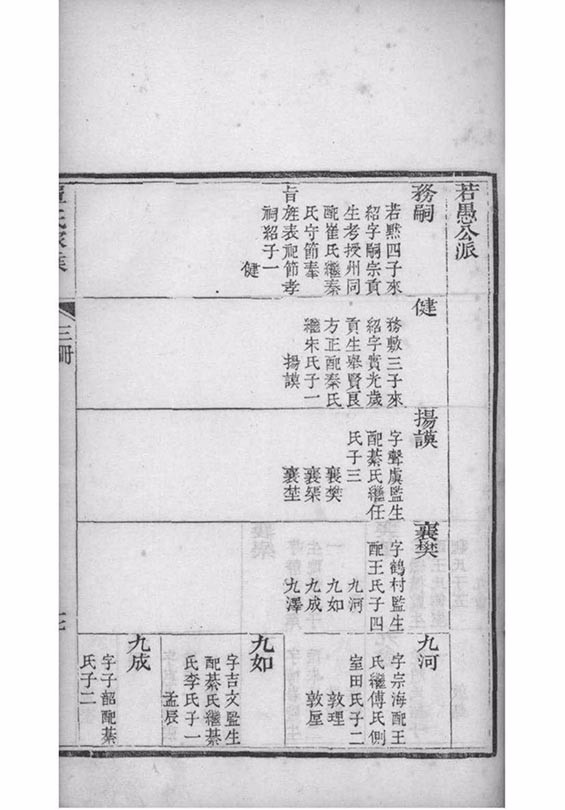 若愚公派
務嗣
若黙四子來
紹字嗣宗貢
生考授州同
配崔氏繼秦
氏守節奉
旨旌表祀節孝
祠紹子一
健
健
務敷三子來
紹字賁光歲
貢生舉賢良
方正配秦氏
繼朱氏子一
揚謨
揚謨
字聲虞監生
配綦氏繼任
氏子三
襄樊
襄
襄
襄樊
字鶴村監生
配王氏子四
九河
九如
九成
九澤
九河
字宗海配王
氏繼傅氏側
室田氏子二
敦理
敦屋
九如
字吉文監生
配綦氏繼綦
氏李氏子一
孟辰
九成
字子韶配綦
氏子二
三冊